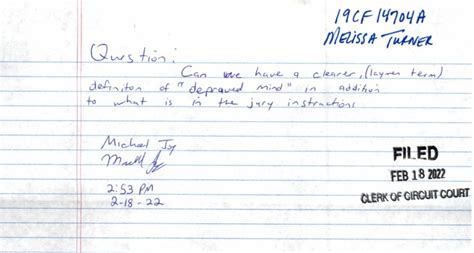 19CF14704A
MELISSA TURNER
Question:
Can we have a clearer, (laymen term)
definiton of "depraved mind" in addition
to what is in the jury instructions
Michael Joy
2:53 PM
2-18-22
FILED
FEB 18 2022
CLERK OF CIRCUIT COURT